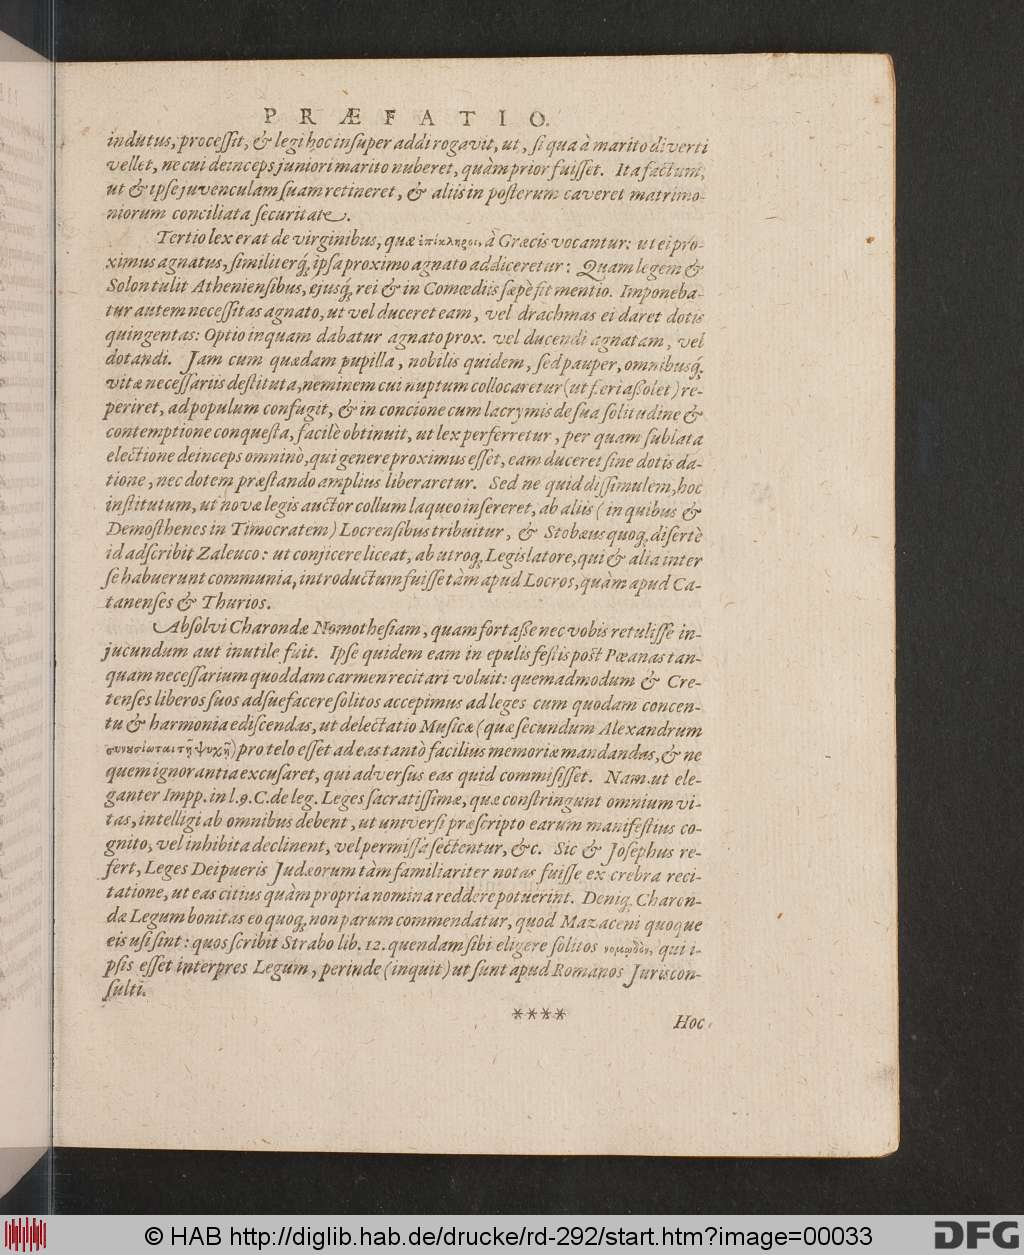 PRÆFATIO.
indutus, processit, & legi hoc insuper addi rogavit, ut, si qua à marito diverti
vellet, ne cui deinceps juniori marito nuberet, quàm prior fuisset. Ita factum,
ut & ipse juvenculam suam retineret, & aliis in posterum caveret matrimo-
niorum conciliata securitate.
Tertio lex erat de virginibus, quæ ἐπίκληροι, à Græcis vocantur: ut ei pro-
ximus agnatus, similiterq́; ipsa proximo agnato addiceretur: Quam legem &
Solon tulit Atheniensibus, ejusq́; rei & in Comœdiis sæpè fit mentio. Imponeba-
tur autem necessitas agnato, ut vel duceret eam, vel drachmas ei daret dotis
quingentas: Optio inquam dabatur agnato prox. vel ducendi agnatam, vel
dotandi. Jam cum quædam pupilla, nobilis quidem, sed pauper, omnibusq́;
vitæ necessariis destituta, neminem cui nuptum collocaretur (ut fieri aßolet) re-
periret, ad populum confugit, & in concione cum lacrymis de sua solitudine &
contemptione conquesta, facilè obtinuit, ut lex perferretur, per quam sublata
electione deinceps omninò, qui genere proximus esset, eam duceret sine dotis da-
tione, nec dotem præstando amplius liberaretur. Sed ne quid dissimulem, hoc
institutum, ut novæ legis auctor collum laqueo insereret, ab aliis (in quibus &
Demosthenes in Timocratem) Locrensibus tribuitur, & Stobæus quoq; disertè
id adscribit Zaleuco: ut conjicere liceat, ab utroq; Legislatore, qui & alia inter
se habuerunt communia, introductum fuisse tàm apud Locros, quàm apud Ca-
tanenses & Thurios.
Absolvi Charondæ Nomothesiam, quam fortaße nec vobis retulisse in-
jucundum aut inutile fuit. Ipse quidem eam in epulis festis post Pœanas tan-
quam necessarium quoddam carmen recitari voluit: quemadmodum & Cre-
tenses liberos suos adsuefacere solitos accepimus ad leges cum quodam concen-
tu & harmonia ediscendas, ut delectatio Musicæ (quæ secundum Alexandrum
συνουσίωται τῇ ψυχῇ) pro telo esset ad eas tantò facilius memoriæ mandandas, & ne
quem ignorantia excusaret, qui adversus eas quid commisisset. Nam ut ele-
ganter Impp. in l. 9. C. de leg. Leges sacratissimæ, quæ constringunt omnium vi-
tas, intelligi ab omnibus debent, ut universi præscripto earum manifestius co-
gnito, vel inhibita declinent, vel permissa sectentur, &c. Sic & Josephus re-
fert, Leges Dei pueris Judæorum tàm familiariter notas fuisse ex crebra reci-
tatione, ut eas citius quàm propria nomina reddere potuerint. Deniq; Charon-
dæ Legum bonitas eo quoq; non parum commendatur, quod Mazaceni quoque
eis usi sint: quos scribit Strabo lib. 12. quendam sibi eligere solitos νομῳδὸν, qui i-
psis esset interpres Legum, perinde (inquit) ut sunt apud Romanos Juriscon-
sulti.
**** Hoc
© HAB http://diglib.hab.de/drucke/rd-292/start.htm?image=00033
DFG